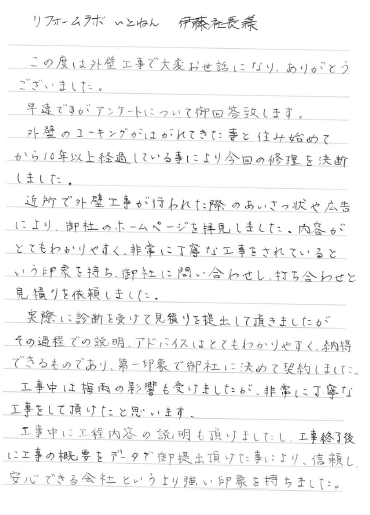 リフォームラボ いとねん 伊藤社長様
この度は外壁工事で大変お世話になり、ありがとう
ございました。
早速ですがアンケートについて御回答致します。
外壁のコーキングがはがれてきた事と住み始めて
から10年以上経過している事により今回の修理を決断
しました。
近所で外壁工事が行われた際のあいさつ状や広告
により、御社のホームページを拝見しました。内容が
とてもわかりやすく、非常に丁寧な工事をされていると
いう印象を持ち、御社に問い合わせし、打ち合わせと
見積りを依頼しました。
実際に診断を受けて見積りを提出して頂きましたが
その過程での説明、アドバイスはとてもわかりやすく、納得
できるものであり、第一印象で御社に決めて契約しました。
工事中は梅雨の影響も受けましたが、非常に丁寧な
工事をして頂けたと思います。
工事中に工程内容の説明も頂けましたし、工事終了後
に工事の概要をデータで御提出頂けた事により、信頼し、
安心できる会社というより強い印象を持ちました。